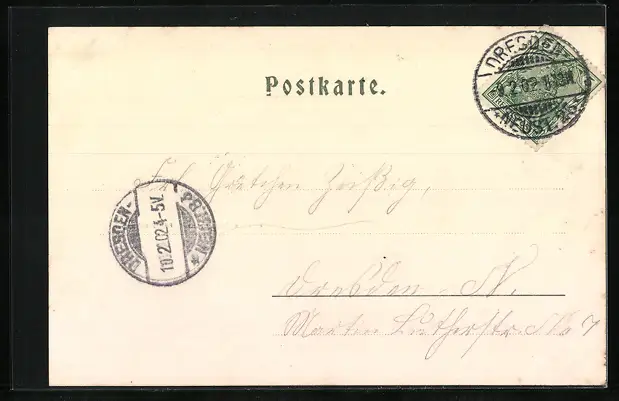 Postkarte.
DRESDEN
9.2.02
NEUST.
Frl. Gretchen Zeißig,
DRESDEN-
10.2.02.4-5V.
Dresden. N.
Martin Lutherstr. No 7